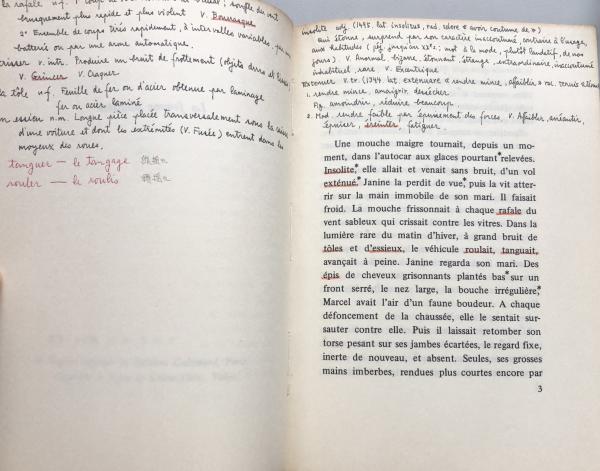 la rafale n.f.
brusquement plus rapide et plus violent V. Bourrasque
2° Ensemble de coups tirés rapidement, à intervalles variables, par une
batterie ou par une arme automatique.
crisser v. intr. Produire un bruit de frottement (objets durs et lisses)
V. Grincer V. Craquer
la tôle n.f. Feuille de fer ou d'acier obtenue par laminage
fer ou acier laminé
un essieu n.m. Longue pièce placée transversalement sous la caisse
d'une voiture et dont les extrémités (V. Fusée) entrent dans les
moyeux des roues.
tanguer — le tangage
rouler — le roulis
insolite adj. (1495. lat. insolitus, rad. solere « avoir coutume de »)
qui étonne, surprend par son caractère inaccoutumé, contraire à l'usage,
aux habitudes
jours) V. Anormal, bizarre, étonnant, étrange, extraordinaire, inaccoutumé
inhabituel, rare V. Excentrique
Exténuer v. tr.
1. rendre mince, amaigrir, dessécher
Fig. amoindrir, réduire beaucoup.
2. Mod. rendre faible par épuisement des forces. V. Affaiblir, anéantir,
épuiser, éreinter, fatiguer.
Une mouche maigre tournait, depuis un mo-
ment, dans l'autocar aux glaces pourtant* relevées.
Insolite,* elle allait et venait sans bruit, d'un vol
exténué.* Janine la perdit de vue,* puis la vit atter-
rir sur la main immobile de son mari. Il faisait
froid. La mouche frissonnait à chaque rafale du
vent sableux qui crissait contre les vitres. Dans la
lumière rare du matin d'hiver, à grand bruit de
tôles et d'essieux, le véhicule roulait, tanguait,
avançait à peine. Janine regarda son mari. Des
épis de cheveux grisonnants plantés bas* sur un
front serré, le nez large, la bouche irrégulière,*
Marcel avait l'air d'un faune boudeur. A chaque
défoncement de la chaussée, elle le sentait sur-
sauter contre elle. Puis il laissait retomber son
torse pesant sur ses jambes écartées, le regard fixe,
inerte de nouveau, et absent. Seules, ses grosses
mains imberbes, rendues plus courtes encore par
3